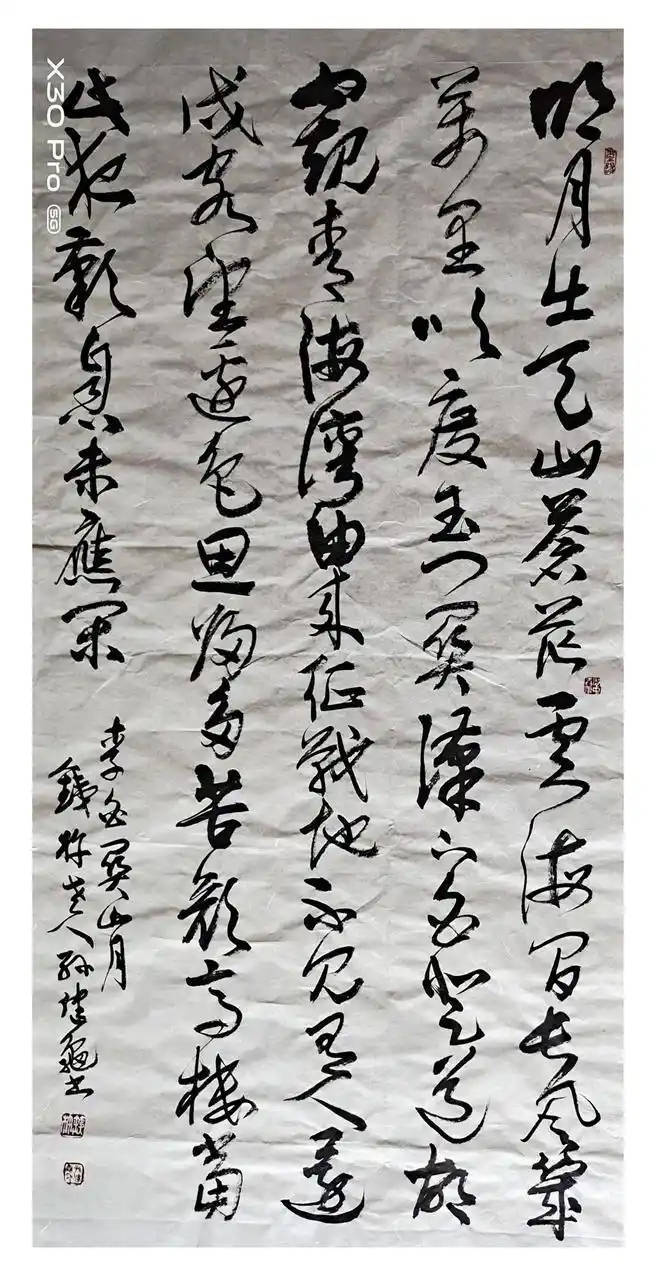 明月出天山蒼茫雲海間長風幾
萬里吹度玉門關漢下白登道胡
窺青海灣由來征戰地不見有人還
戍客望邊色思歸多苦顏高樓當
此夜歎息未應閑
李白關山月
老人孫
X30 Pro 5G